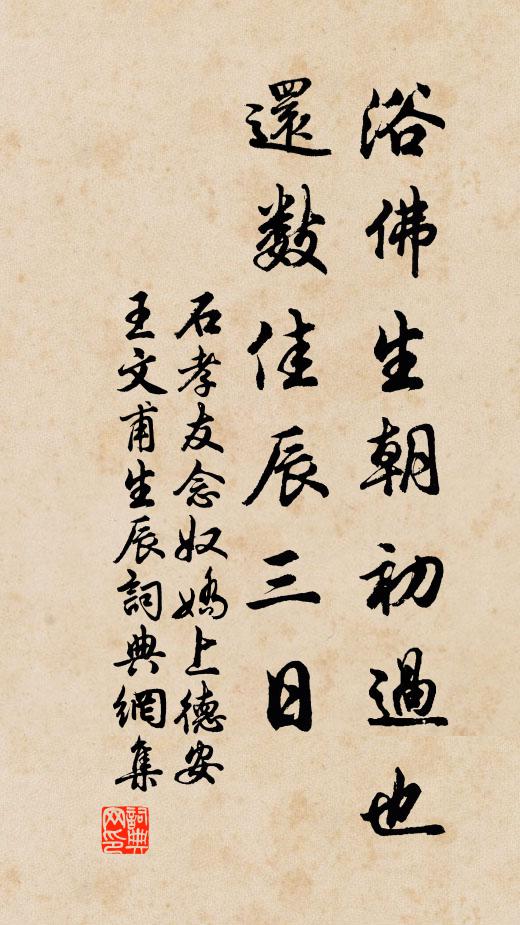 浴佛生朝初過也
還數佳辰三日
石孝友念奴嬌上德安
王文甫生辰詞典網集
詞典
网印